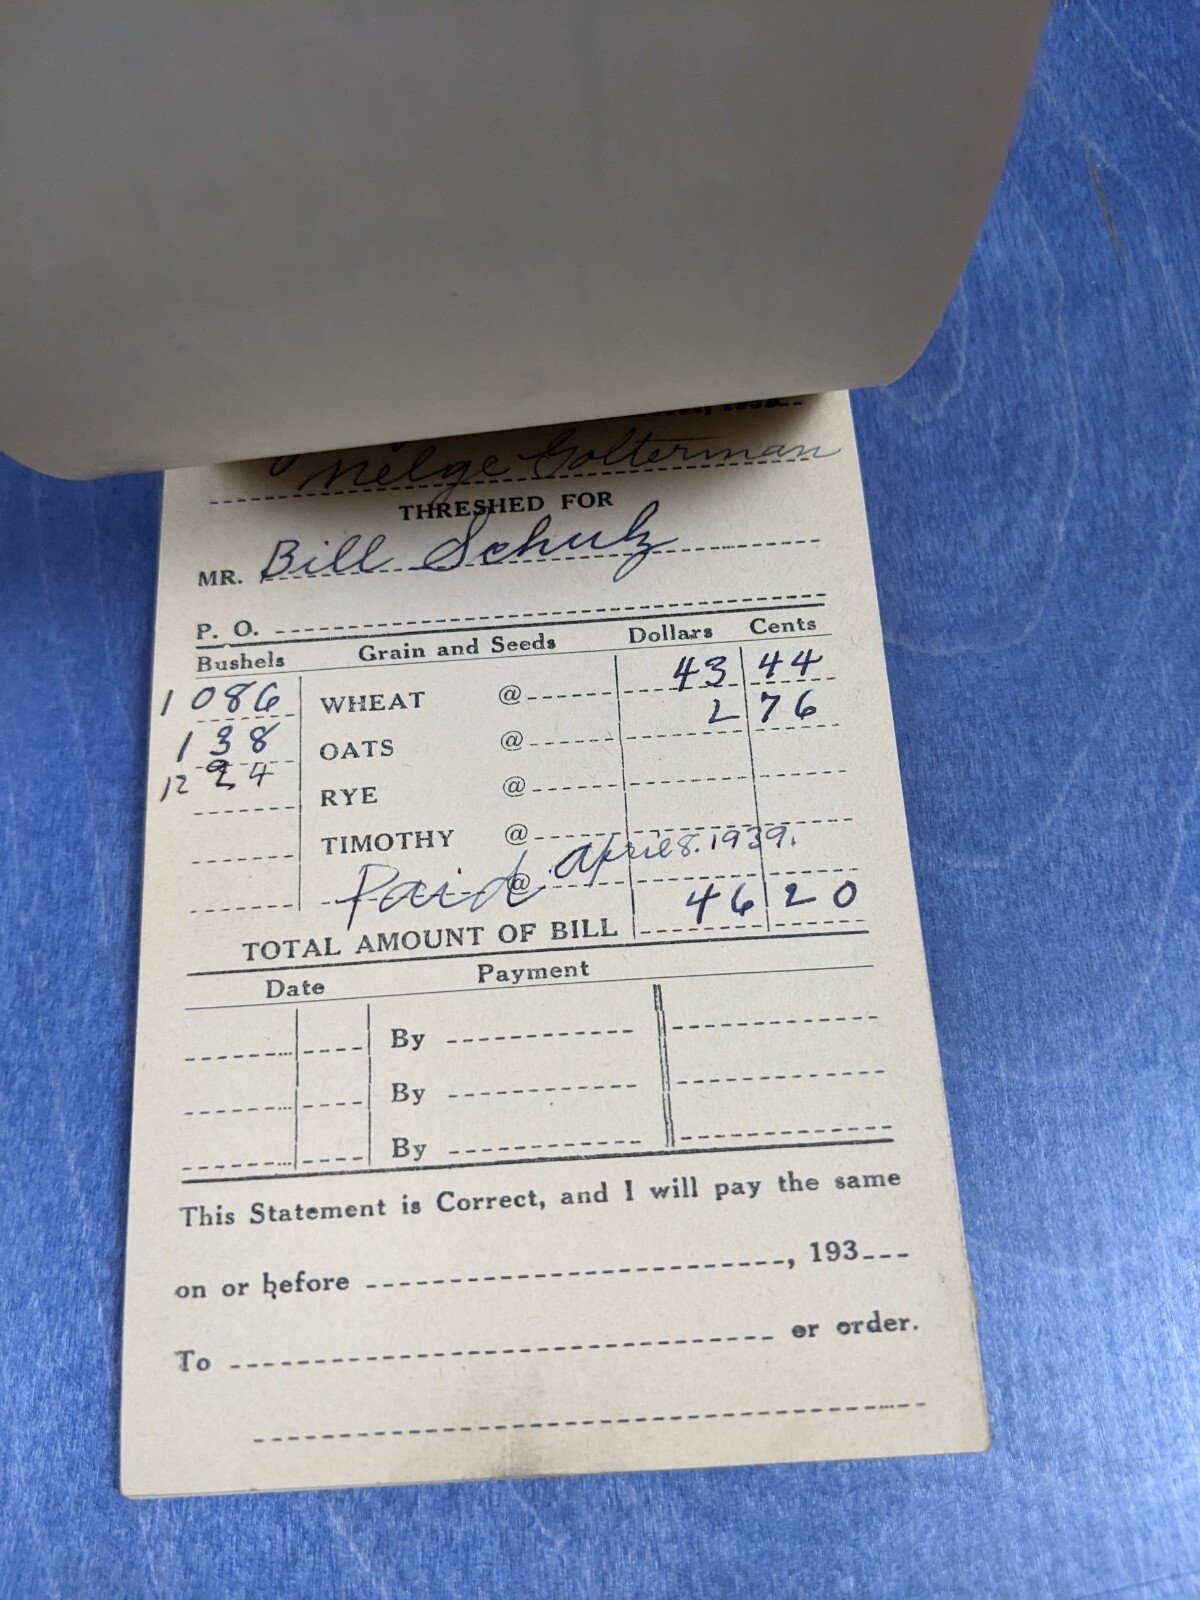 Melge Golterman
THRESHED FOR
MR. Bill Schulz
P. O.
Bushels Grain and Seeds Dollars Cents
1086 WHEAT @ 43 44
138 OATS @ 2 76
1224 RYE @
TIMOTHY @
Paid @ April 8. 1939.
TOTAL AMOUNT OF BILL 46 20
Date Payment
By
By
By
This Statement is Correct, and I will pay the same
on or before , 193
To or order.